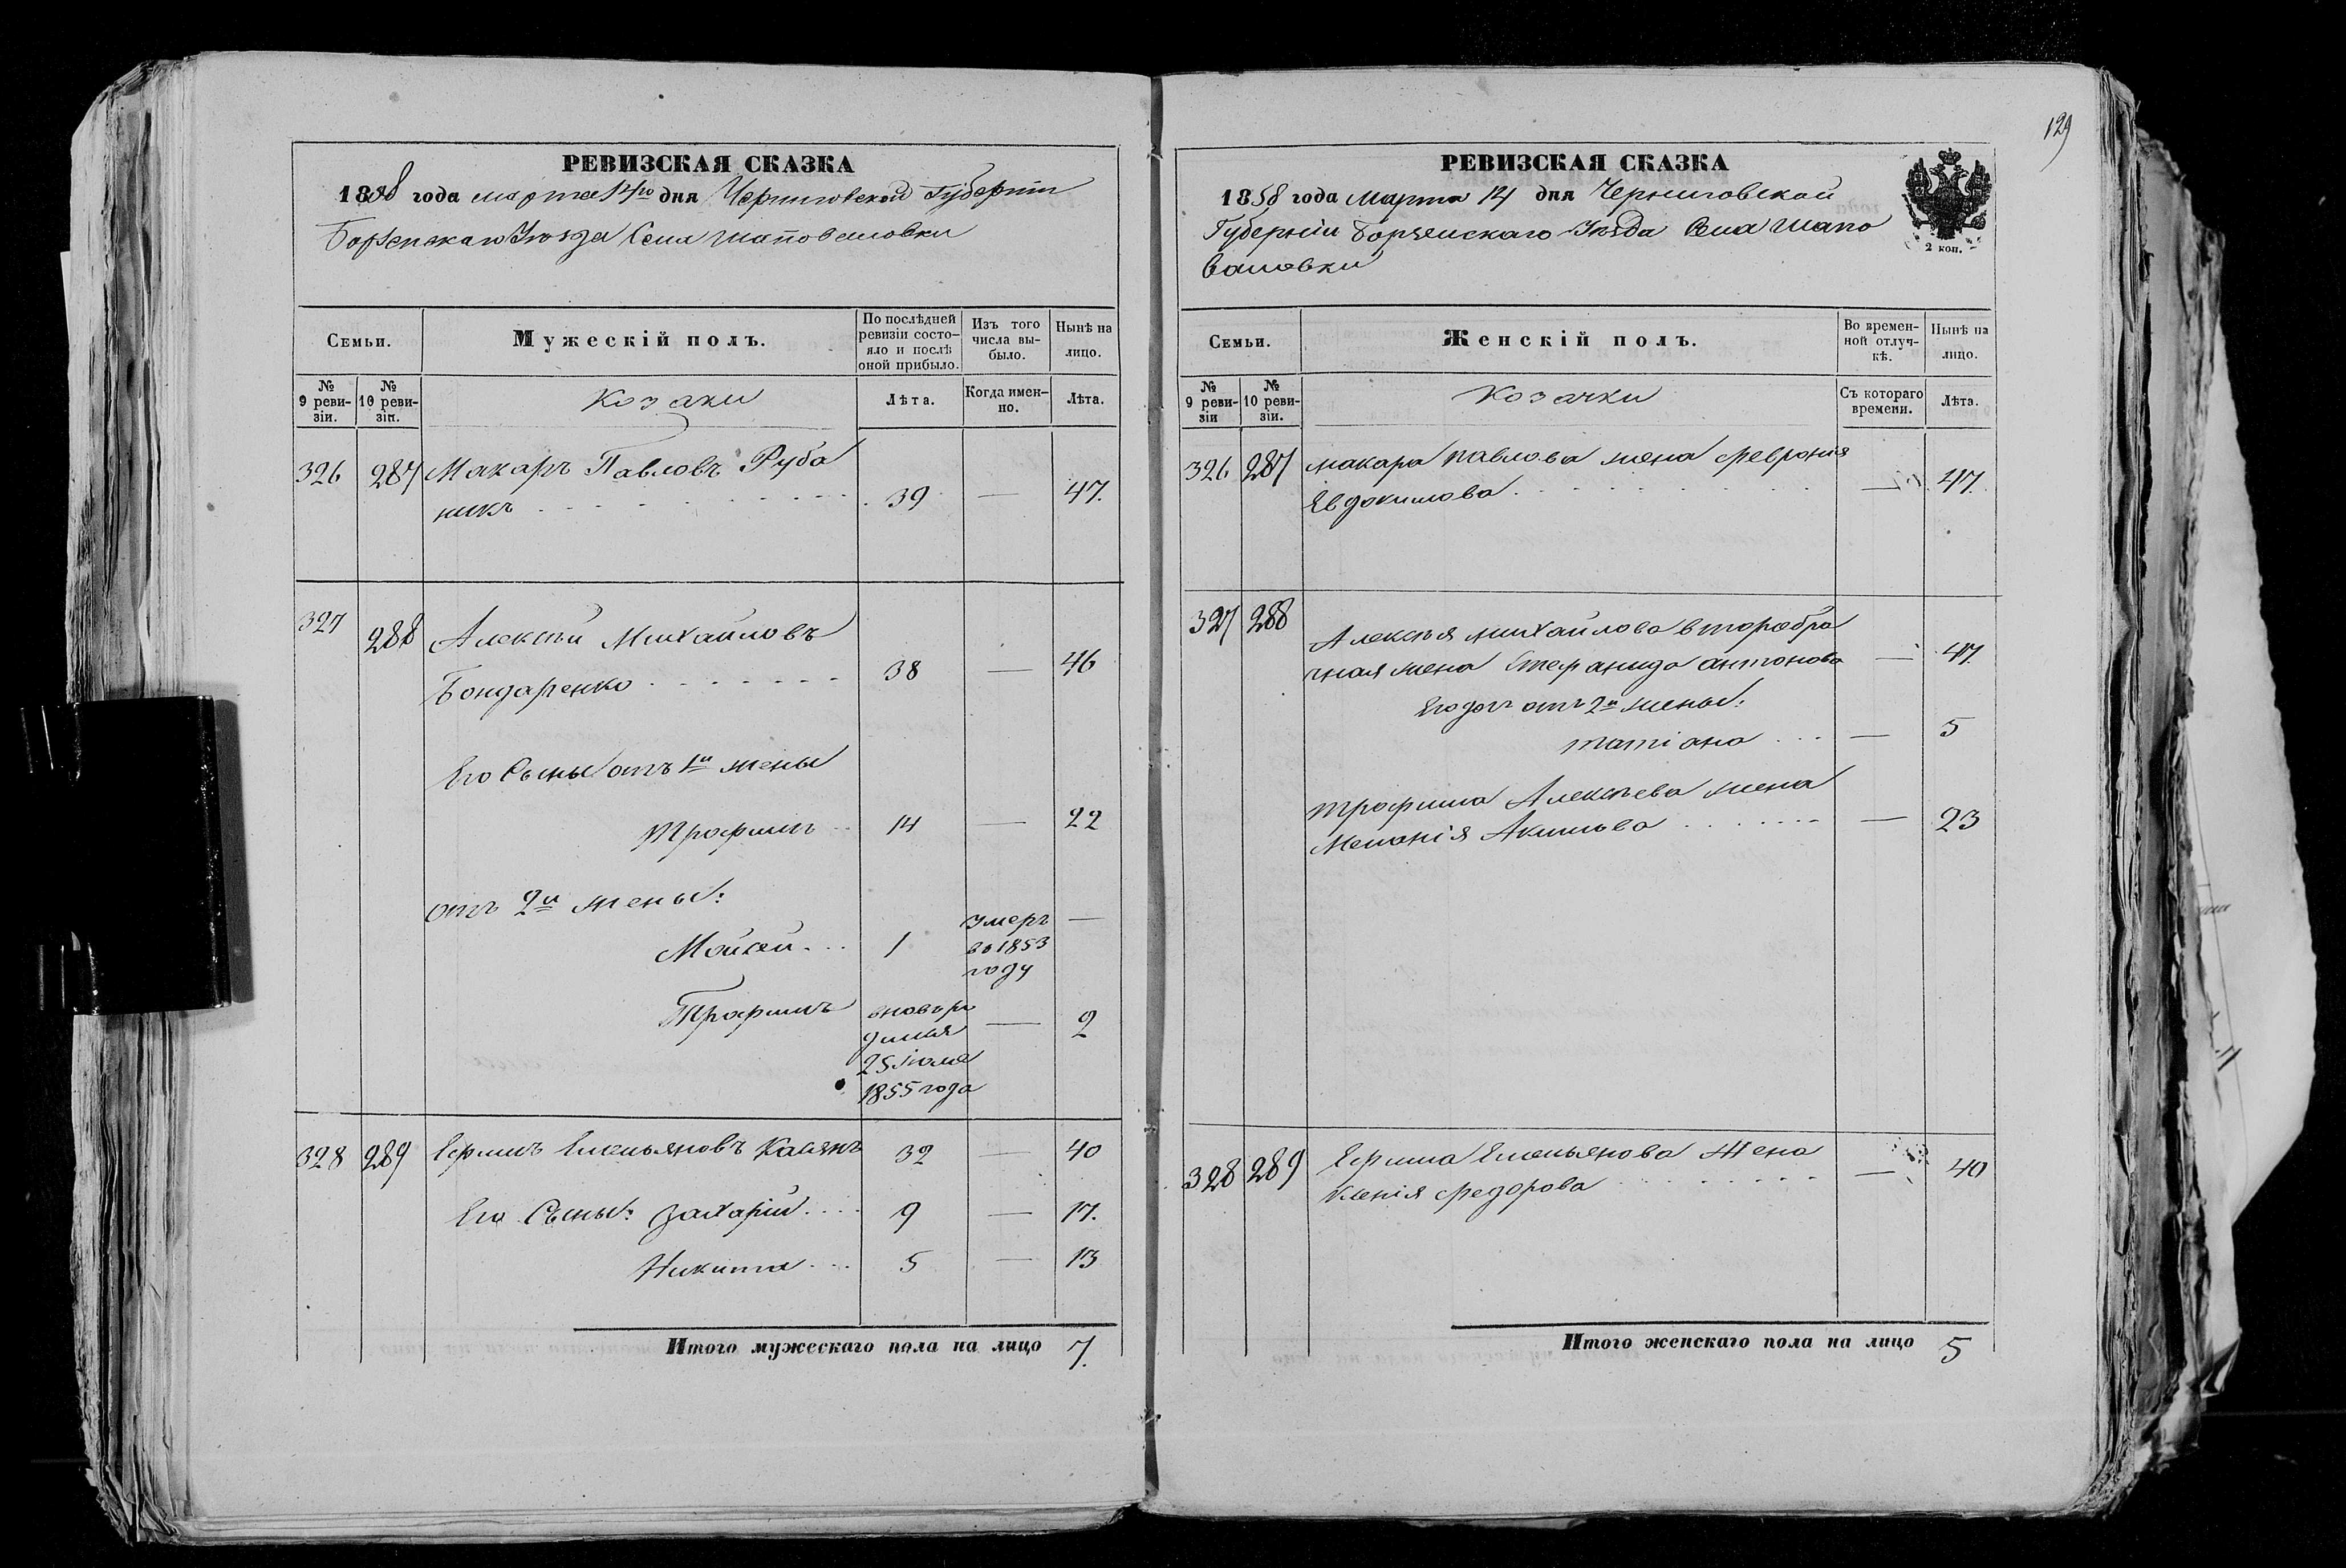 129
РЕВИЗСКАЯ СКАЗКА
1858 года марта 14го дня Черниговской Губернии
Борзенскаго Уезда Села Шаповаловки
Семьи.
Мужескій полъ.
По послѣдней ревизіи состо-
яло и послѣ оной прибыло.
Изъ того числа вы-
было.
Нынѣ на лицо.
№ 9 реви-
зіи.
№ 10 реви-
зіи.
Козаки
Лѣта.
Когда имен-
но.
Лѣта.
326 287 Макаръ Павловъ Руба
никъ 39 — 47.
327 288 Алексѣй Михайловъ
Бондаренко 38 — 46
Его Сыны отъ 1й жены
Трофимъ 14 — 22
отъ 2й жены:
Мойсей 1 умеръ —
въ 1853
году
Трофимъ вновь ро — 2
дился
25 Июля
1855 года
328 289 Ефимъ Емельяновъ Касянъ 32 — 40
Его Сыны: Захарій 9 — 17.
Никита 5 — 13
Итого мужескаго пола на лицо 7.
РЕВИЗСКАЯ СКАЗКА
1858 года Марта 14 дня Черниговской
Губерніи Борзенскаго Уѣзда Села Шапо
валовки
2 коп.
Семьи.
Женскій полъ.
Во времен-
ной отлуч-
кѣ.
Нынѣ на лицо.
№ 9 реви-
зіи
№ 10 реви-
зіи.
Козачки
Съ котораго времени.
Лѣта.
326 287 Макара Павлова жена Февронія
Евдокимова — 47.
327 288 Алексѣя Михайлова второбра
чная жена Стефанида Антонова — 47.
Его дочь отъ 2й жены:
Татіана — 5
Трофима Алексѣева жена
Меланія Акимова — 23
328 289 Ефима Емельянова Жена
Ксенія Федорова — 40
Итого женскаго пола на лицо 5